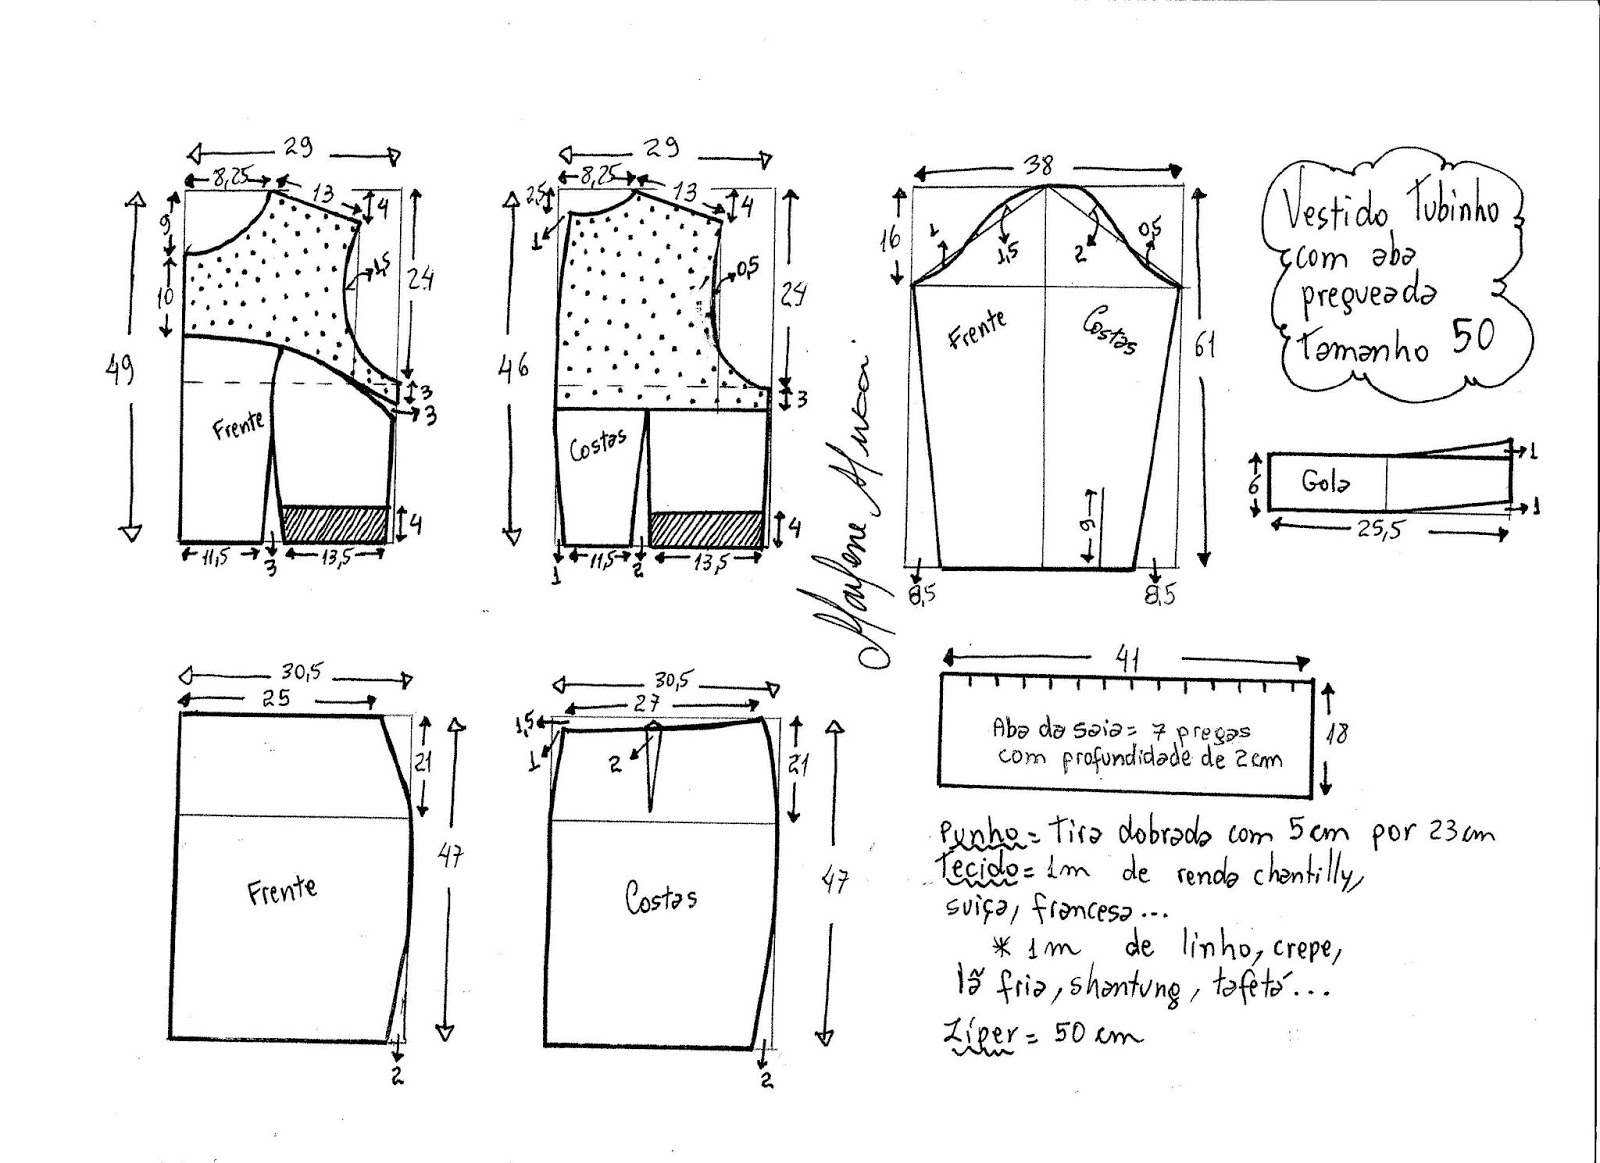 29
8,25
13
4
9
10
1,5
24
49
3
3
Frente
4
11,5
3
13,5
29
2,5
8,25
13
4
1
0,5
24
46
3
Costas
4
1
11,5
2
13,5
38
16
1
1,5
2
0,5
Frente
Costas
61
9
8,5
8,5
Vestido Tubinho
com aba
pregueada
Tamanho 50
6
Gola
1
1
25,5
Marlene Mukai
30,5
25
21
47
Frente
2
30,5
27
1,5
1
2
21
47
Costas
2
41
Aba da saia= 7 pregas
com profundidade de 2cm
18
Punho= Tira dobrada com 5cm por 23cm
Tecido= 1m de renda chantilly,
suiça, francesa...
* 1m de linho, crepe,
lã fria, shantung, tafetá...
Zíper= 50cm